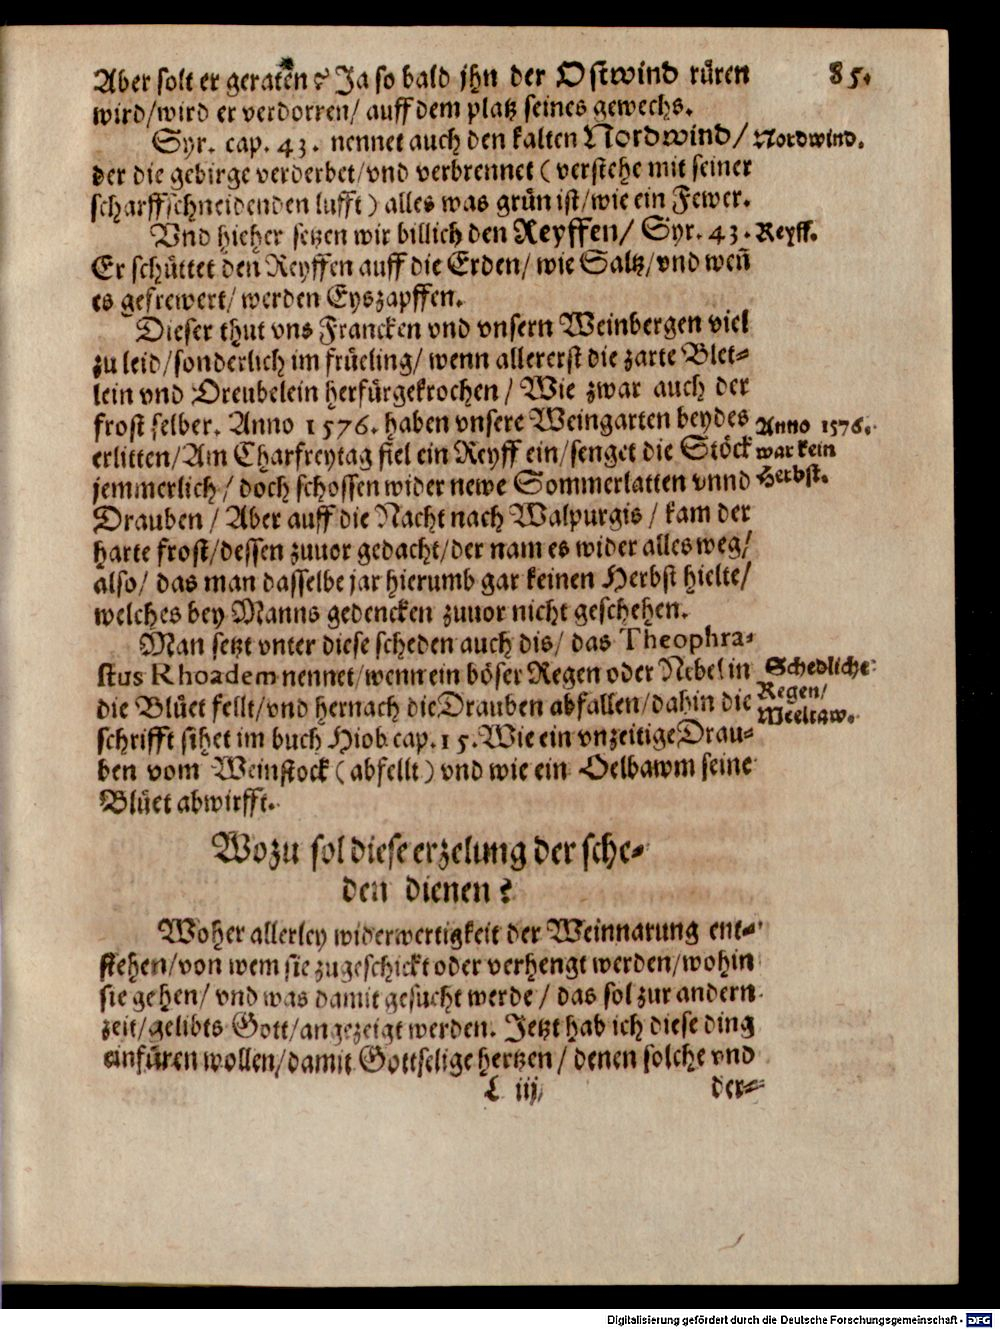 Aber solt er geraten? Ja so bald jhn der Ostwind rüren
85.
wird/wird er verdorren/ auff dem platz seines gewechs.
Syr. cap. 43. nennet auch den kalten Nordwind/
Nordwind.
der die gebirge verderbet/vnd verbrennet (verstehe mit seiner
scharffschneidenden lufft) alles was grün ist/wie ein Fewer.
Vnd hieher setzen wir billich den Reyffen/ Syr. 43.
Reyff.
Er schüttet den Reyffen auff die Erden/ wie Saltz/vnd weñ
es gefrewert/ werden Eyszapffen.
Dieser thut vns Francken vnd vnsern Weinbergen viel
zu leid/sonderlich im früeling/ wenn allererst die zarte Blet-
lein vnd Dreubelein herfürgekrochen/ Wie zwar auch der
frost selber. Anno 1576. haben vnsere Weingarten beydes
Anno 1576.
erlitten/Am Charfreytag fiel ein Reyff ein/senget die Stöck
war kein
jemmerlich/ doch schossen wider newe Sommerlatten vnnd
Herbst.
Drauben/ Aber auff die Nacht nach Walpurgis/ kam der
harte frost/dessen zuuor gedacht/der nam es wider alles weg/
also/ das man dasselbe jar hierumb gar keinen Herbst hielte/
welches bey Manns gedencken zuuor nicht geschehen.
Man setzt vnter diese scheden auch dis/ das Theophra-
stus Rhoadem nennet/wenn ein böser Regen oder Nebel in
Schedliche
Regen/
die Blüet fellt/vnd hernach die Drauben abfallen/dahin die
Meeltaw.
schrifft sihet im buch Hiob cap. 15. Wie ein vnzeitige Drau-
ben vom Weinstock (abfellt) vnd wie ein Oelbawm seine
Blüet abwirfft.
Wozu sol diese erzelung der sche-
den dienen?
Woher allerley widerwertigkeit der Weinnarung ent-
stehen/von wem sie zugeschickt oder verhengt werden/wohin
sie gehen/ vnd was damit gesucht werde/ das sol zur andern
zeit/gelibts Gott/angezeigt werden. Jetzt hab ich diese ding
einfüren wollen/damit Gottselige hertzen/ denen solche vnd
L iij
der-
Digitalisierung gefördert durch die Deutsche Forschungsgemeinschaft - DFG